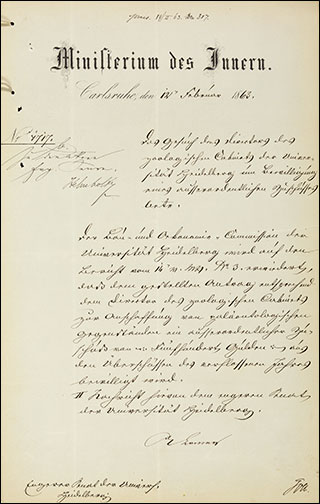 praes. 18/II 63. No 207.
Ministerium des Innern.
Carlsruhe, den 14ⁿ Februar 1863.
No 1717.
Das Gesuch des Directors des
zoologischen Cabinets der Univer-
sität Heidelberg um Bewilligung
eines ausserordentlichen Zuschusses
betr.
Helmholtz
Der Bau- und Ökonomie-Commission der
Universität Heidelberg wird auf den
Bericht vom 14 v. Mts. No 3. erwiedert,
dass dem gestellten Antrag entsprechend
dem Director des zoologischen Cabinets
zur Anschaffung von paläontologischen
Gegenständen ein ausserordentlicher Zu-
schuss von Fünfhundert Gulden aus
den Überschüssen des verflossenen Jahres
bewilligt wird.
II Nachricht hievon dem engeren Senat
der Universität Heidelberg.
Engerer Senat der Univers.
Heidelberg